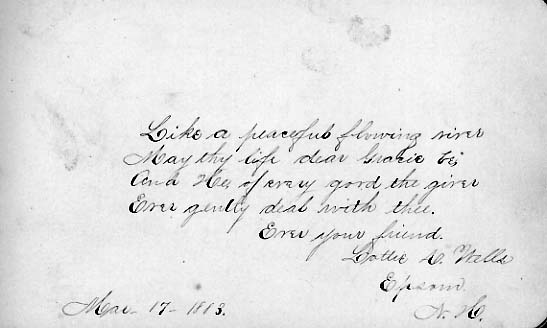 Like a peaceful flowing river
May thy life dear Gracie be,
And He, of every good the giver
Ever gently deal with thee.
Ever your friend.
Lottie A. Wells
Epsom
N. H.
Mar- 17- 1883.